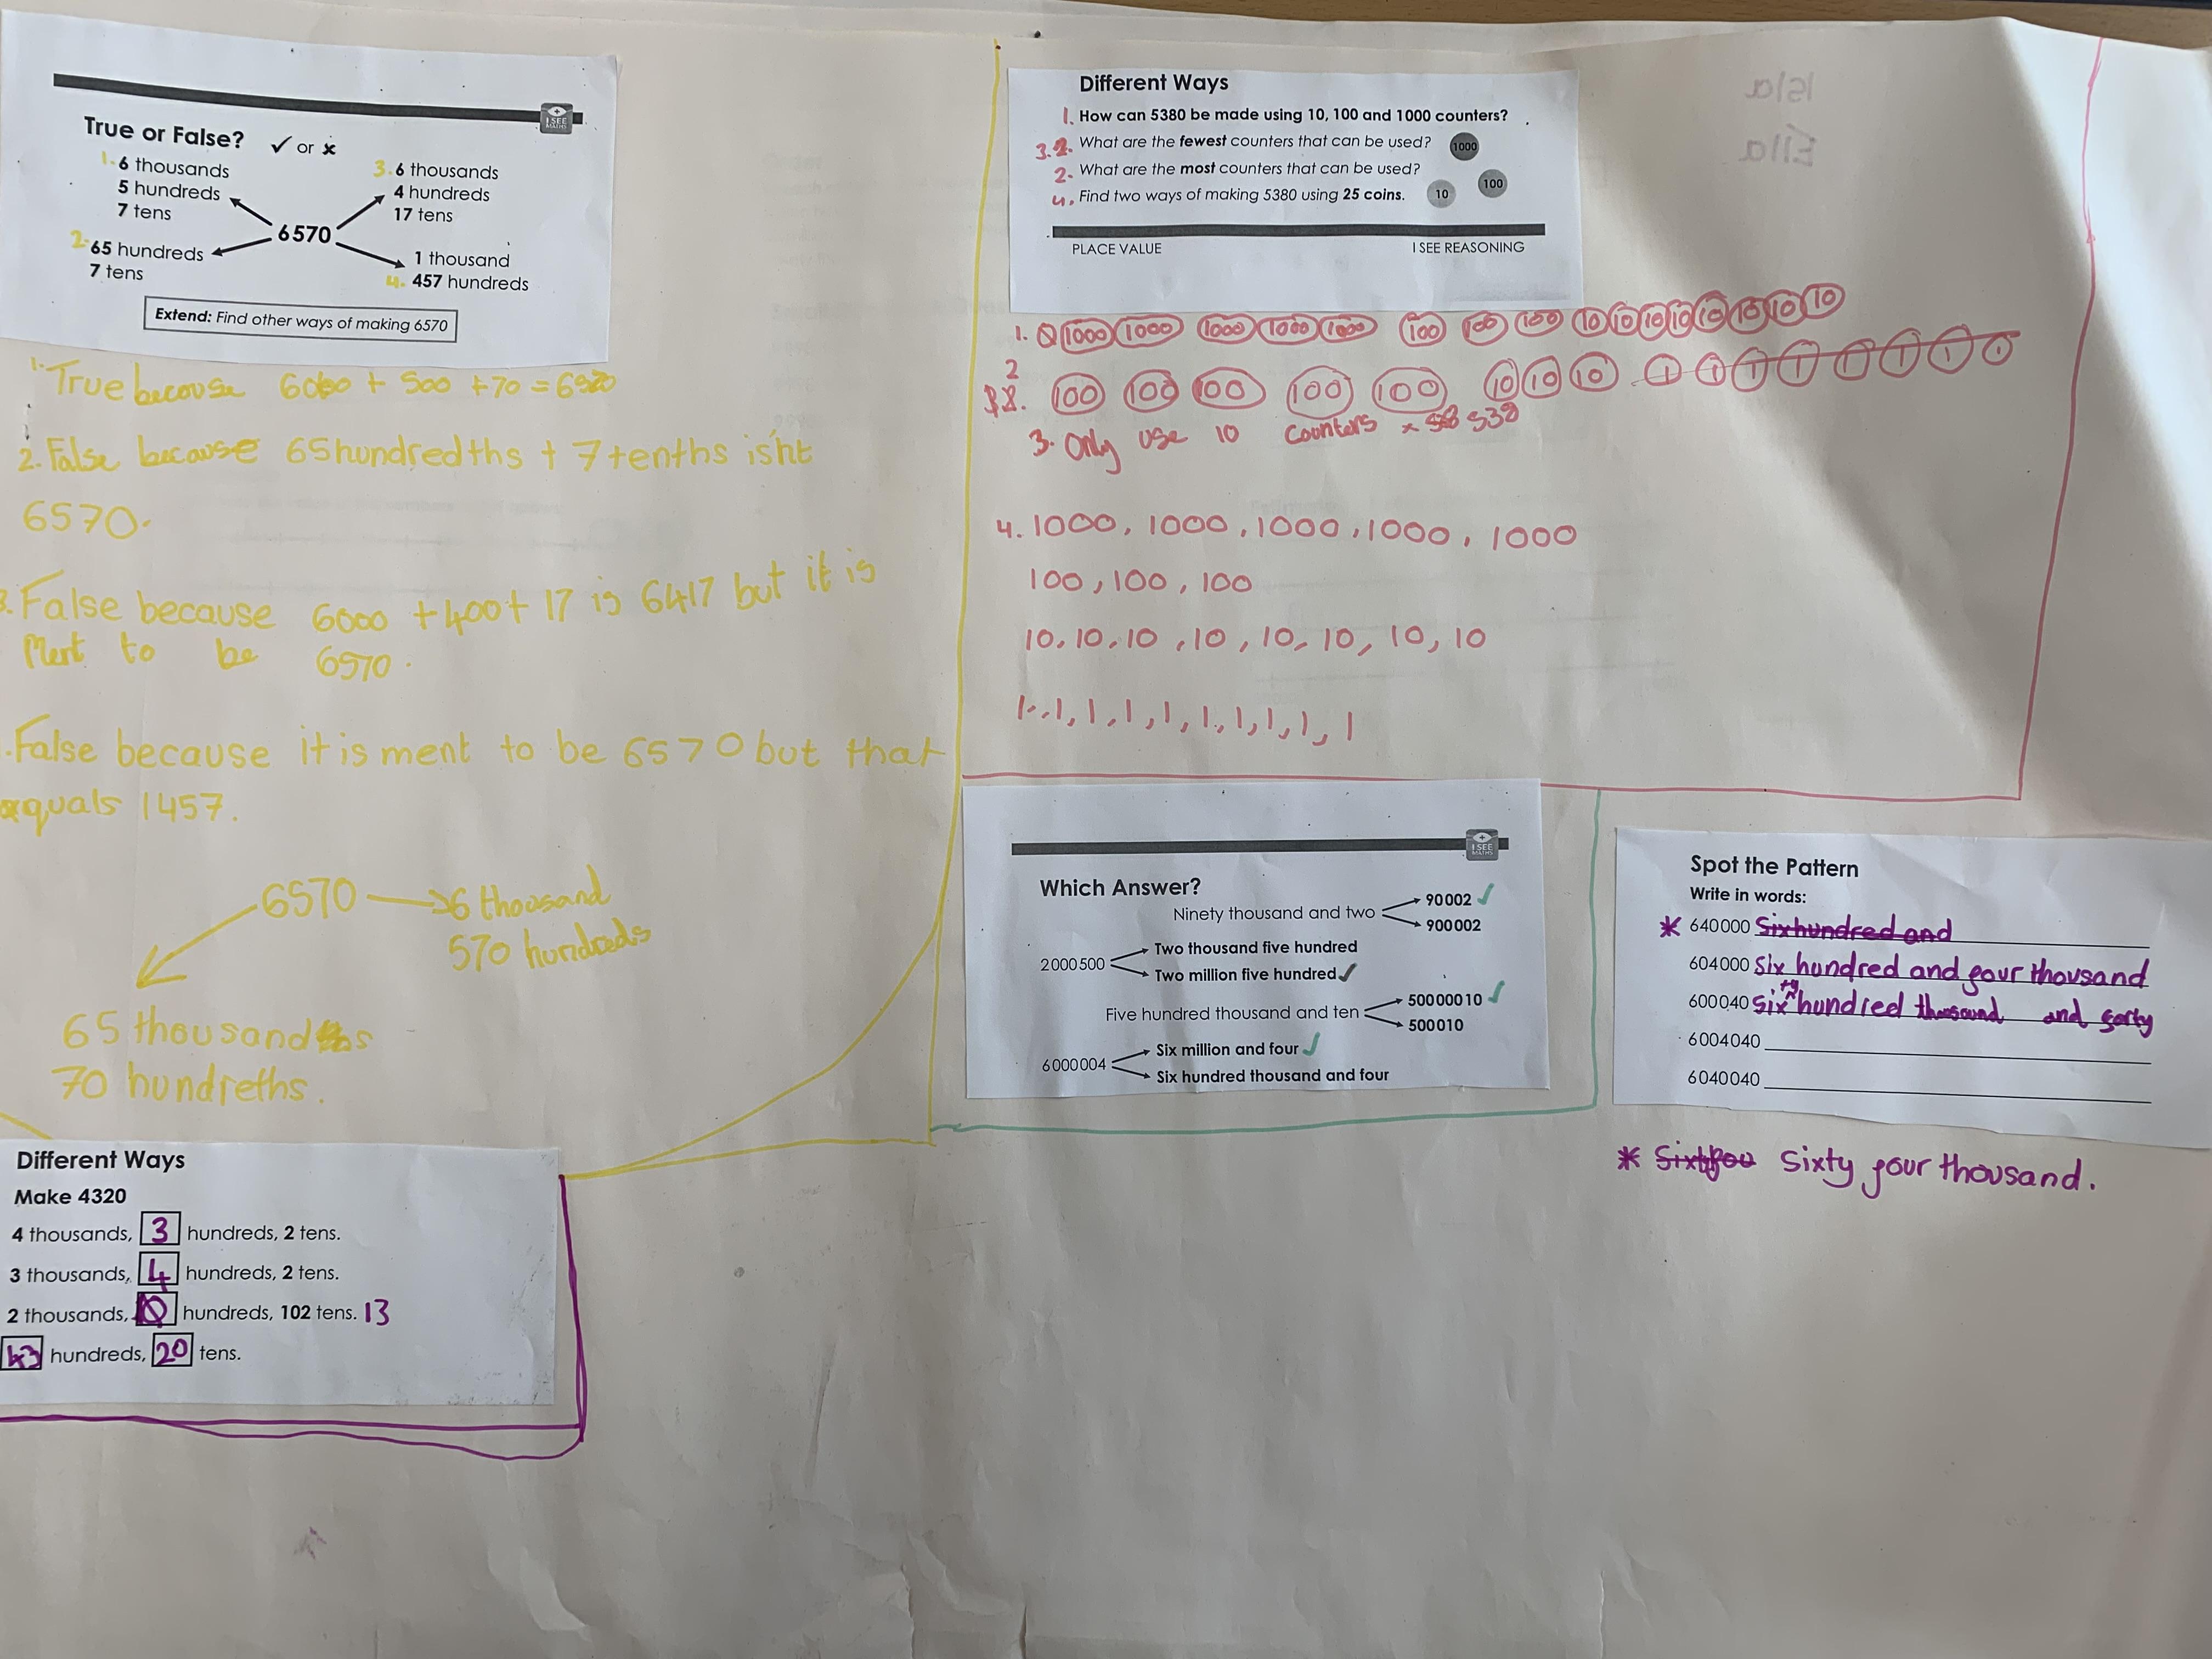 I SEE
MATHS
True or False? ✓ or ✗
1. 6 thousands
5 hundreds
7 tens
3. 6 thousands
4 hundreds
17 tens
6570
2. 65 hundreds
7 tens
1 thousand
4. 457 hundreds
Extend: Find other ways of making 6570
1. True because 6000 + 500 + 70 = 6570
2. False because 65 hundredths + 7 tenths isn't
6570.
3. False because 6000 + 400 + 17 is 6417 but it is
ment to be 6570.
. False because it is ment to be 6570 but that
equals 1457.
6570 → 6 thousand
570 hundreds
65 thousands
70 hundreths.
Different Ways
Make 4320
4 thousands, 3 hundreds, 2 tens.
3 thousands, 4 hundreds, 2 tens.
2 thousands, hundreds, 102 tens. 13
43 hundreds, 20 tens.
Different Ways
1. How can 5380 be made using 10, 100 and 1000 counters?
3. 2. What are the fewest counters that can be used?
2. What are the most counters that can be used?
4. Find two ways of making 5380 using 25 coins.
1000
100
10
PLACE VALUE I SEE REASONING
Isla
Ella
1. 1000 1000 1000 1000 1000 100 100 100 10 10 10 10 10 10 10 10
2
100 100 100 100 100 10 10 10 1 1 1 1 1 1 1 1
3. Only use 10 counters × 538
4. 1000, 1000, 1000, 1000, 1000
100, 100, 100
10, 10, 10, 10, 10, 10, 10, 10
1, 1, 1, 1, 1, 1, 1, 1, 1, 1
I SEE
MATHS
Which Answer?
Ninety thousand and two
90002 ✓
900002
2000500
Two thousand five hundred
Two million five hundred ✓
Five hundred thousand and ten
50000010 ✓
500010
6000004
Six million and four ✓
Six hundred thousand and four
Spot the Pattern
Write in words:
* 640000 Six hundred and
604000 Six hundred and four thousand
600040 six hundred thousand and forty
6004040
6040040
* Sixtyfou Sixty four thousand.